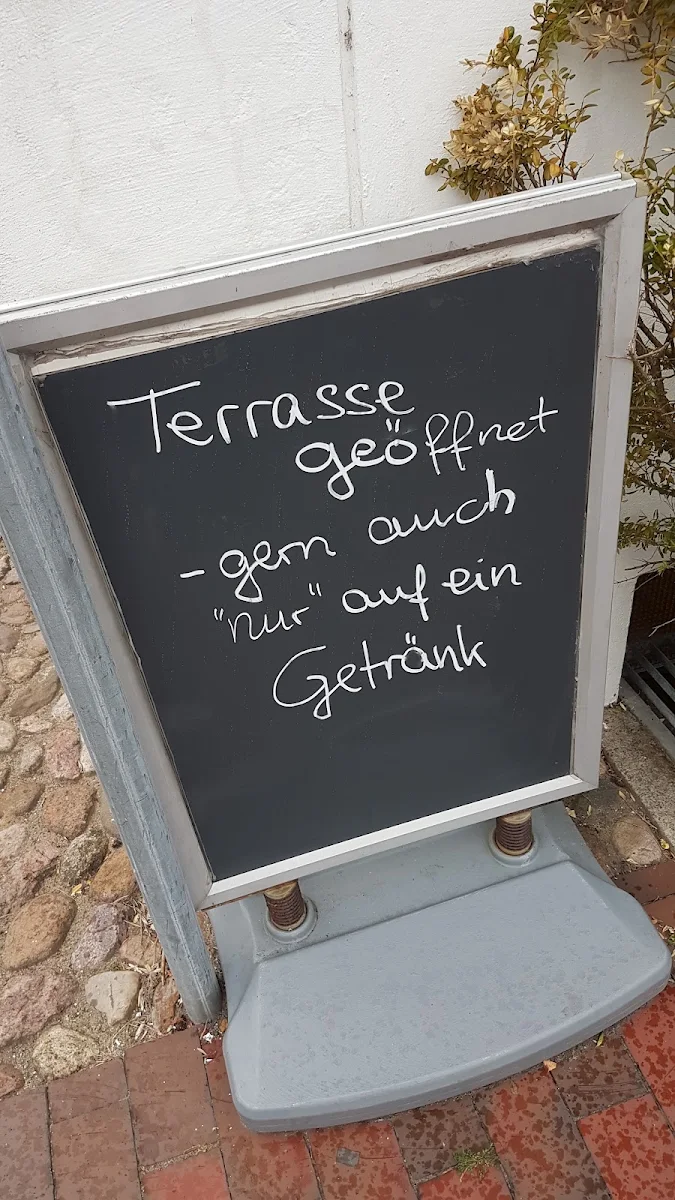 Terrasse
geöffnet
- gern auch
"nur" auf ein
Getränk